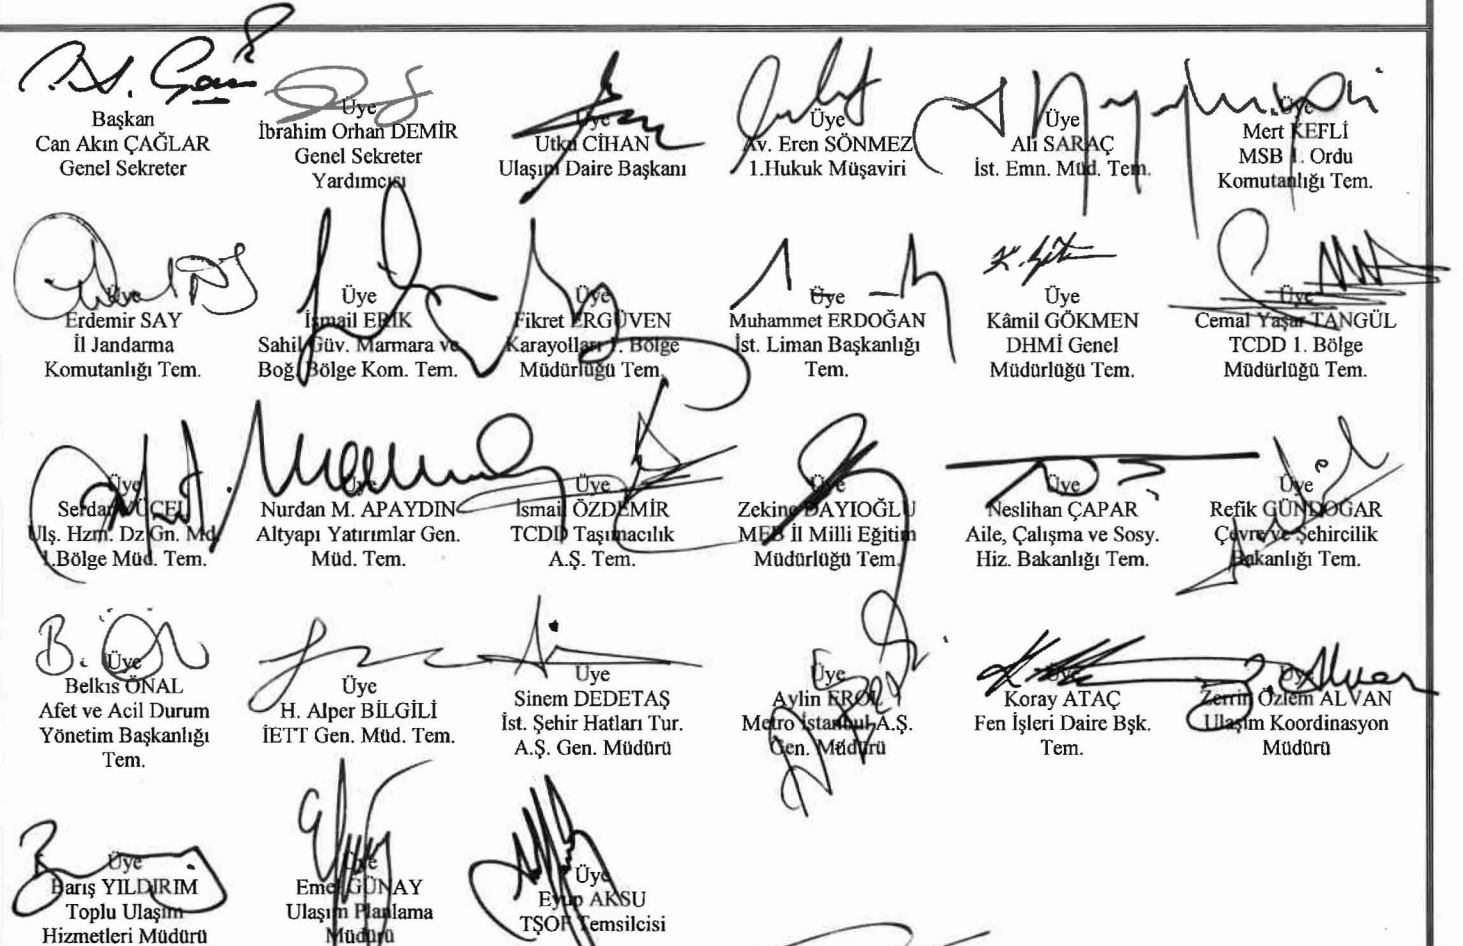 Başkan
Can Akın ÇAĞLAR
Genel Sekreter
Üye
İbrahim Orhan DEMİR
Genel Sekreter
Yardımcısı
Üye
Utku CİHAN
Ulaşım Daire Başkanı
Üye
Av. Eren SÖNMEZ
1.Hukuk Müşaviri
Üye
Ali SARAÇ
İst. Emn. Müd. Tem.
Üye
Mert KEFLİ
MSB 1. Ordu
Komutanlığı Tem.
Üye
Erdemir SAY
İl Jandarma
Komutanlığı Tem.
Üye
İsmail ERİK
Sahil Güv. Marmara ve
Boğ. Bölge Kom. Tem.
Üye
Fikret ERGÜVEN
Karayolları 1. Bölge
Müdürlüğü Tem.
Üye
Muhammet ERDOĞAN
İst. Liman Başkanlığı
Tem.
K. Gökmen
Üye
Kâmil GÖKMEN
DHMİ Genel
Müdürlüğü Tem.
Üye
Cemal Yaşar TANGÜL
TCDD 1. Bölge
Müdürlüğü Tem.
Üye
Serdar YÜCEL
Ulş. Hzm. Dz Gn. Md.
1.Bölge Müd. Tem.
Üye
Nurdan M. APAYDIN
Altyapı Yatırımlar Gen.
Müd. Tem.
Üye
İsmail ÖZDEMİR
TCDD Taşımacılık
A.Ş. Tem.
Üye
DAYIOĞLU
MEB İl Milli Eğitim
Müdürlüğü Tem.
Üye
Neslihan ÇAPAR
Aile, Çalışma ve Sosy.
Hiz. Bakanlığı Tem.
Üye
Refik GÜNDOĞAR
Çevre ve Şehircilik
Bakanlığı Tem.
Üye
Belkıs ÖNAL
Afet ve Acil Durum
Yönetim Başkanlığı
Tem.
Üye
H. Alper BİLGİLİ
İETT Gen. Müd. Tem.
Üye
Sinem DEDETAŞ
İst. Şehir Hatları Tur.
A.Ş. Gen. Müdürü
Üye
Aylin EROL
Metro İstanbul A.Ş.
Gen. Müdürü
Üye
Koray ATAÇ
Fen İşleri Daire Bşk.
Tem.
Üye
Zerrin Özlem ALVAN
Ulaşım Koordinasyon
Müdürü
Üye
Barış YILDIRIM
Toplu Ulaşım
Hizmetleri Müdürü
Üye
Emel GÜNAY
Ulaşım Planlama
Müdürü
Üye
Eyup AKSU
TŞOF Temsilcisi